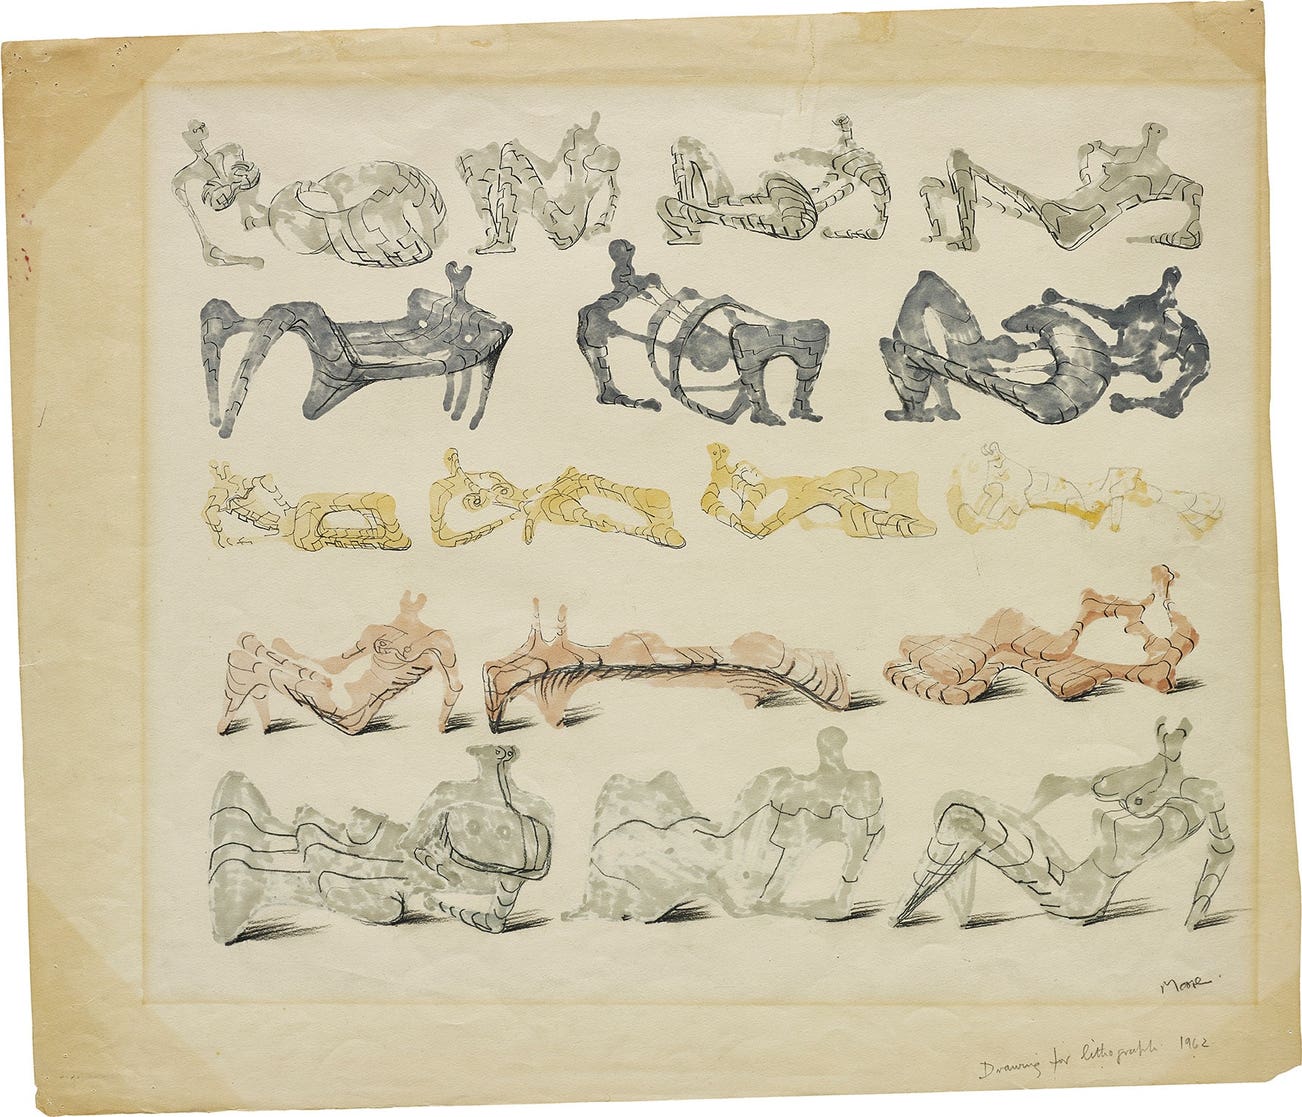 Moore.
Drawing for lithograph. 1962